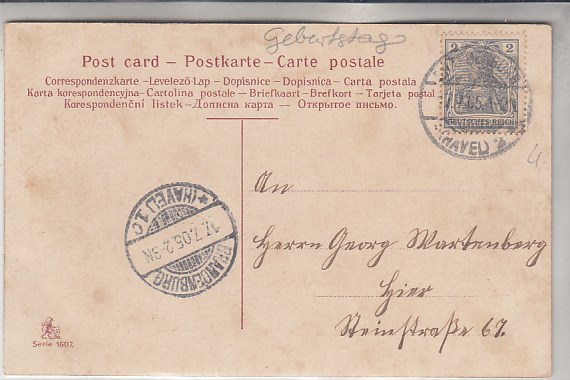 Geburtstag
Post card – Postkarte – Carte postale
Correspondenzkarte – Levelezö-Lap – Dopisnice – Dopisnica – Carta postala
Karta korespondencyjna – Cartolina postale – Briefkaart – Brefkort – Tarjeta postal
Korespondenční listek – Дописна карта – Открытое письмо.
2
DEUTSCHES REICH
(HAVEL)
BRANDENBURG
17.7.05.2-3N.
*(HAVEL)1.c
4.-
An
Herrn Georg Wartenberg
Hier
Steinstraße 67.
Serie 1607.